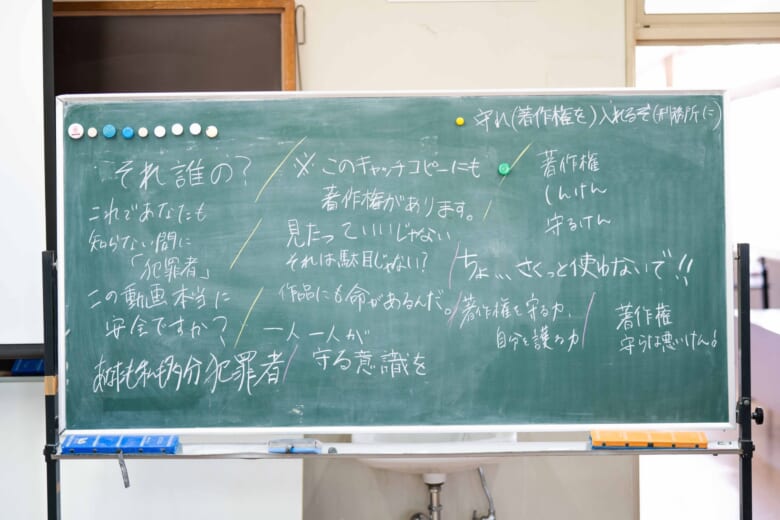 守れ(著作権を)入れるぞ(刑務所に)
それ誰の?
これであなたも
知らない間に
「犯罪者」
この動画本当に
安全ですか?
あなたも私も多分犯罪者
※このキャッチコピーにも
著作権があります。
見たっていいじゃない
それは駄目じゃない?
作品にも命があるんだ。
一人一人が
守る意識を
著作権
しんけん
守るけん
ちょ、、、さくっと使わないで!!
著作権を守る力、
自分を護る力
著作権
守らな悪いけん!